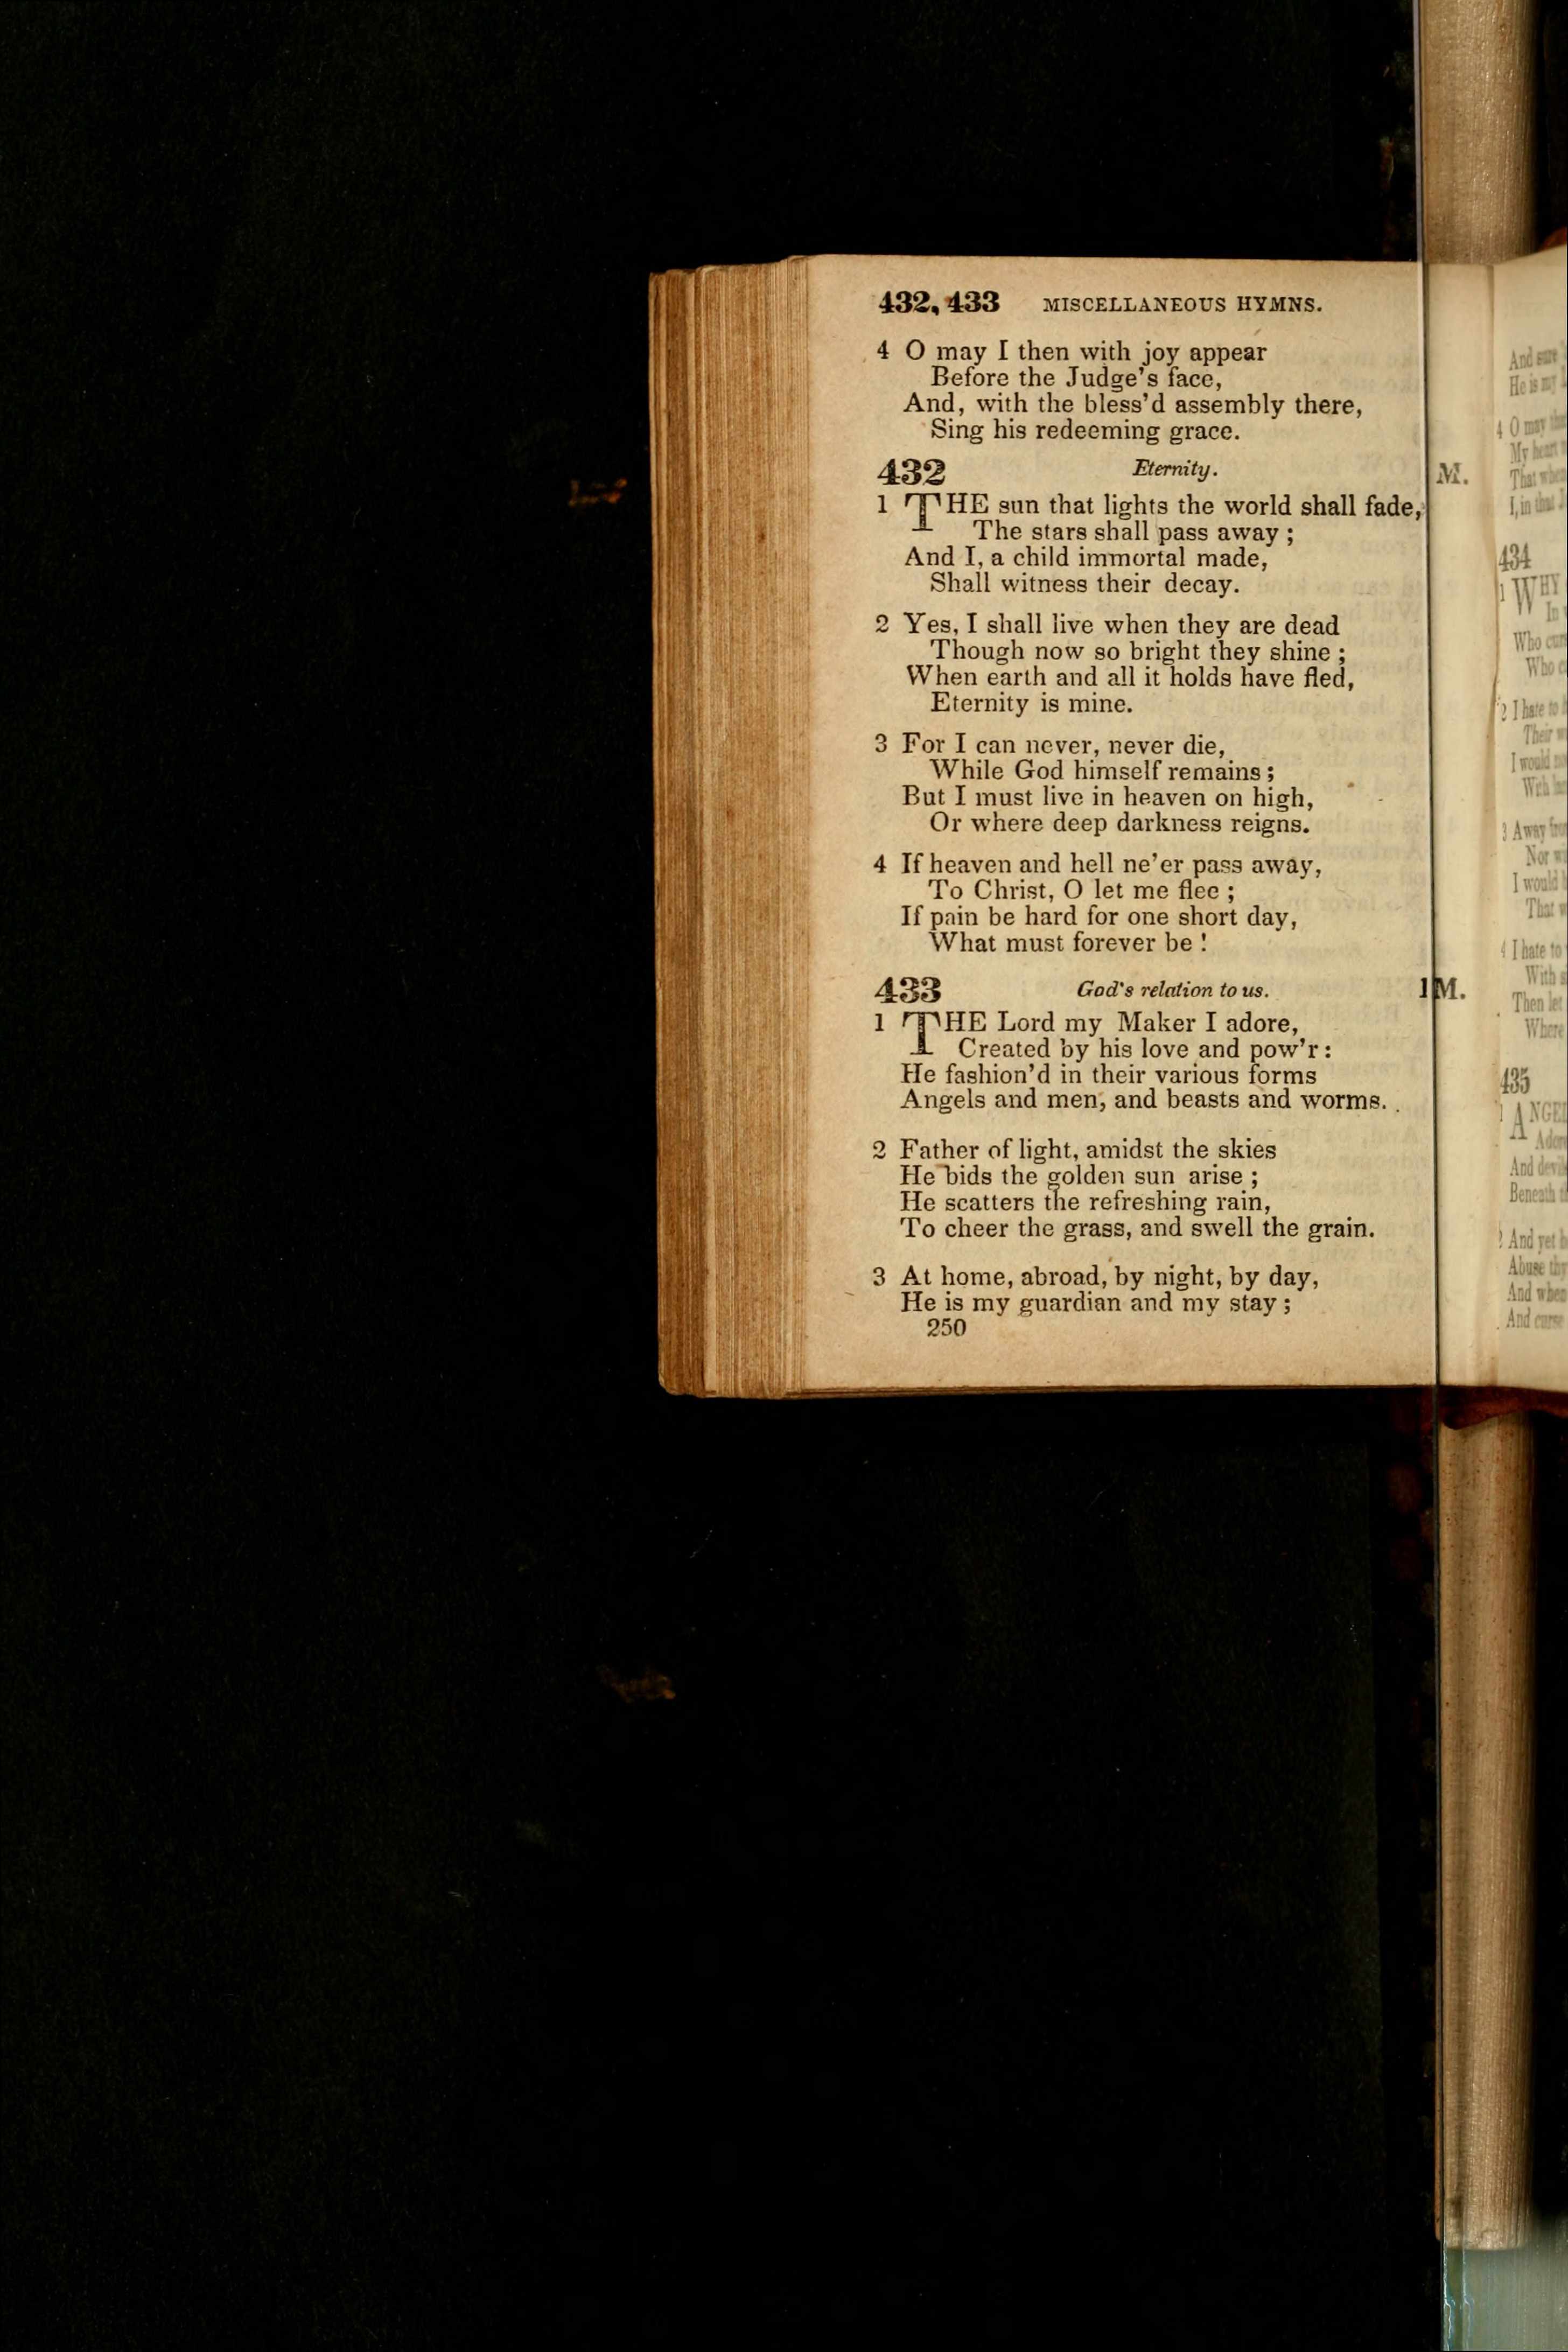 432, 433 MISCELLANEOUS HYMNS.
4 O may I then with joy appear
Before the Judge's face,
And, with the bless'd assembly there,
Sing his redeeming grace.
432 Eternity. M.
1 THE sun that lights the world shall fade,
The stars shall pass away ;
And I, a child immortal made,
Shall witness their decay.
2 Yes, I shall live when they are dead
Though now so bright they shine ;
When earth and all it holds have fled,
Eternity is mine.
3 For I can never, never die,
While God himself remains ;
But I must live in heaven on high,
Or where deep darkness reigns.
4 If heaven and hell ne'er pass away,
To Christ, O let me flee ;
If pain be hard for one short day,
What must forever be !
433 God's relation to us. M.
1 THE Lord my Maker I adore,
Created by his love and pow'r :
He fashion'd in their various forms
Angels and men, and beasts and worms.
2 Father of light, amidst the skies
He bids the golden sun arise ;
He scatters the refreshing rain,
To cheer the grass, and swell the grain.
3 At home, abroad, by night, by day,
He is my guardian and my stay ;
250
And
He is
4 O may
My heart
That
I, in
434
1 WHY
In
Who
Who
2 I hate to
Their
I would
With
3 Away
Nor
I would
That
4 I hate to
With
Then let
Where
435
And
Beneath
And yet
Abuse
And when
And curse